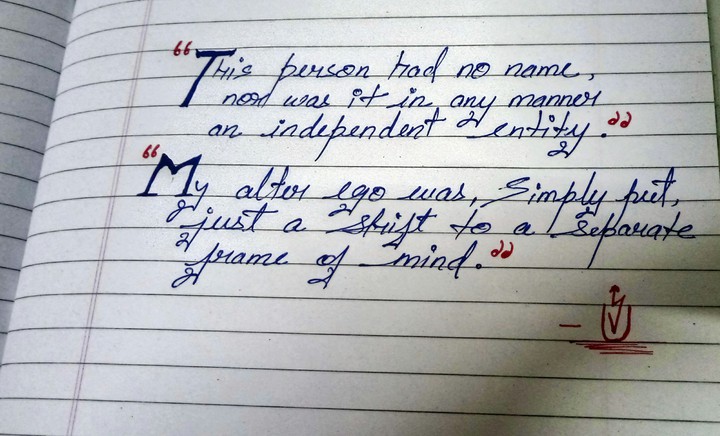 “This person had no name,
nor was it in any manner
an independent entity.”
“My alter ego was, Simply put,
just a shift to a Separate
frame of mind.”